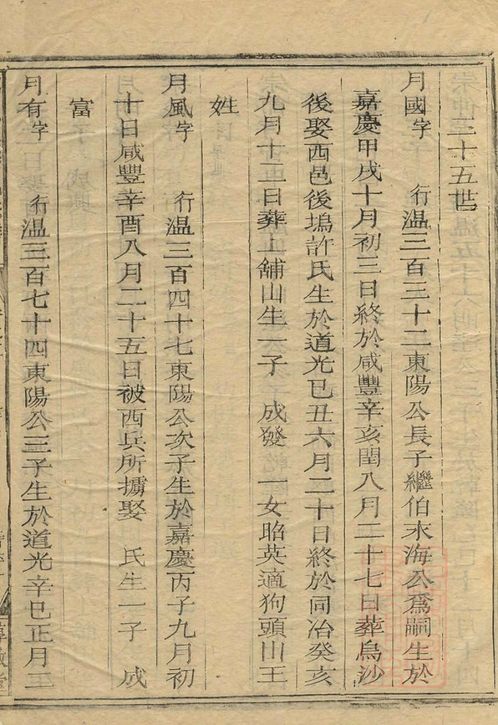 三十五世
月國字 行温三百三十二東陽公長子繼伯水海公爲嗣生於
嘉慶甲戌十月初三日終於咸豐辛亥閏八月二十七日葬烏沙
後娶西邑後塢許氏生於道光己丑六月二十日終於同治癸亥
九月十五日葬上舖山生一子 成發 一女昭英適狗頭山王
姓
月風字 行温三百四十七東陽公次子生於嘉慶丙子九月初
十日咸豐辛酉八月二十五日被西兵所擄娶 氏生一子 成
富
月有字 行温三百七十四東陽公三子生於道光辛巳正月三